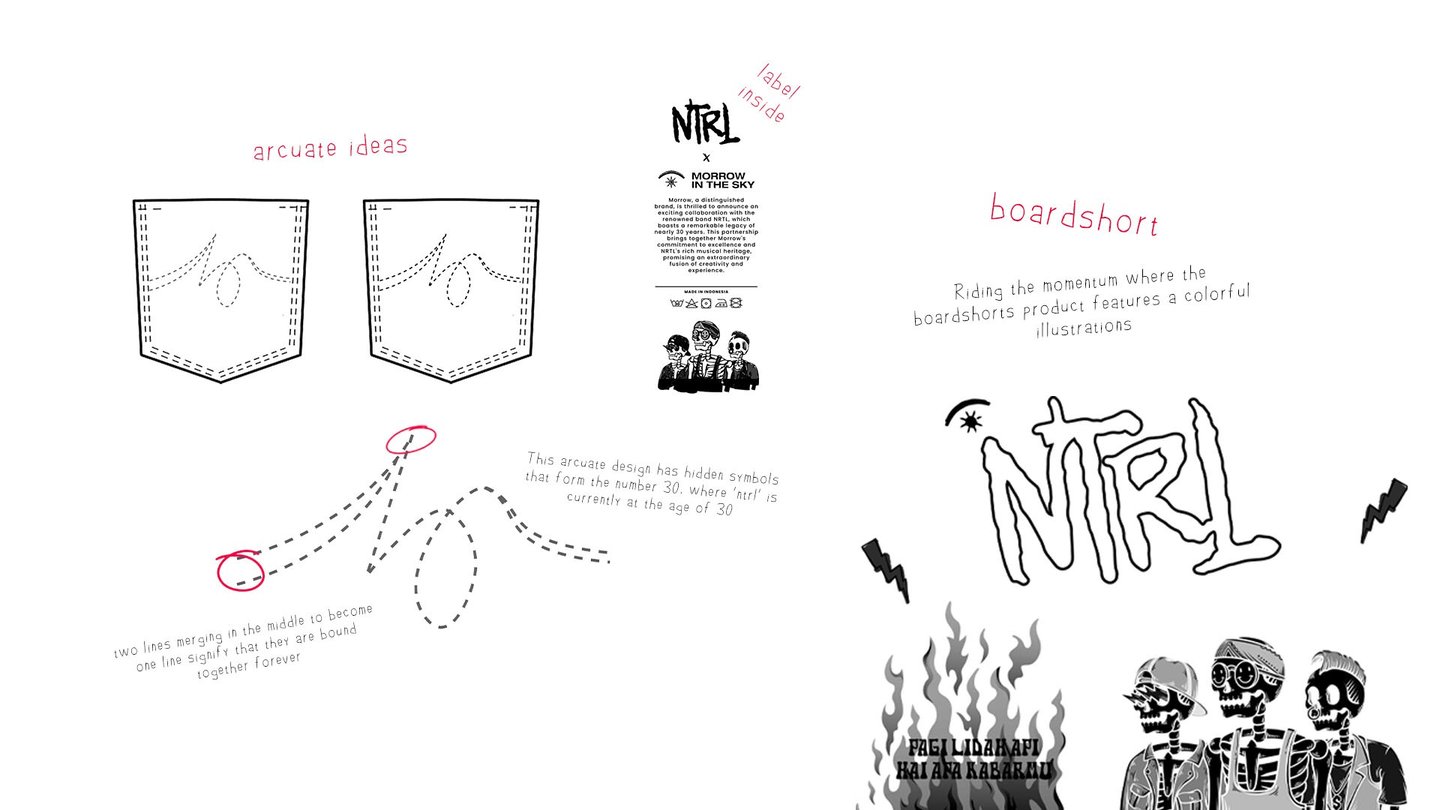 arcuate ideas
This arcuate design has hidden symbols
that form the number 30. where 'ntrl' is
currently at the age of 30
two lines merging in the middle to become
one line signify that they are bound
together forever
label
inside
NTRL
x
MORROW
IN THE SKY
Morrow, a distinguished
brand, is thrilled to announce an
exciting collaboration with the
renowned band NRTL, which
boasts a remarkable legacy of
nearly 30 years. This partnership
brings together Morrow's
commitment to excellence and
NRTL's rich musical heritage,
promising an extraordinary
fusion of creativity and
experience.
MADE IN INDONESIA
boardshort
Riding the momentum where the
boardshorts product features a colorful
illustrations
NTRL
PAGI LIDAH API
HAI APA KABARMU